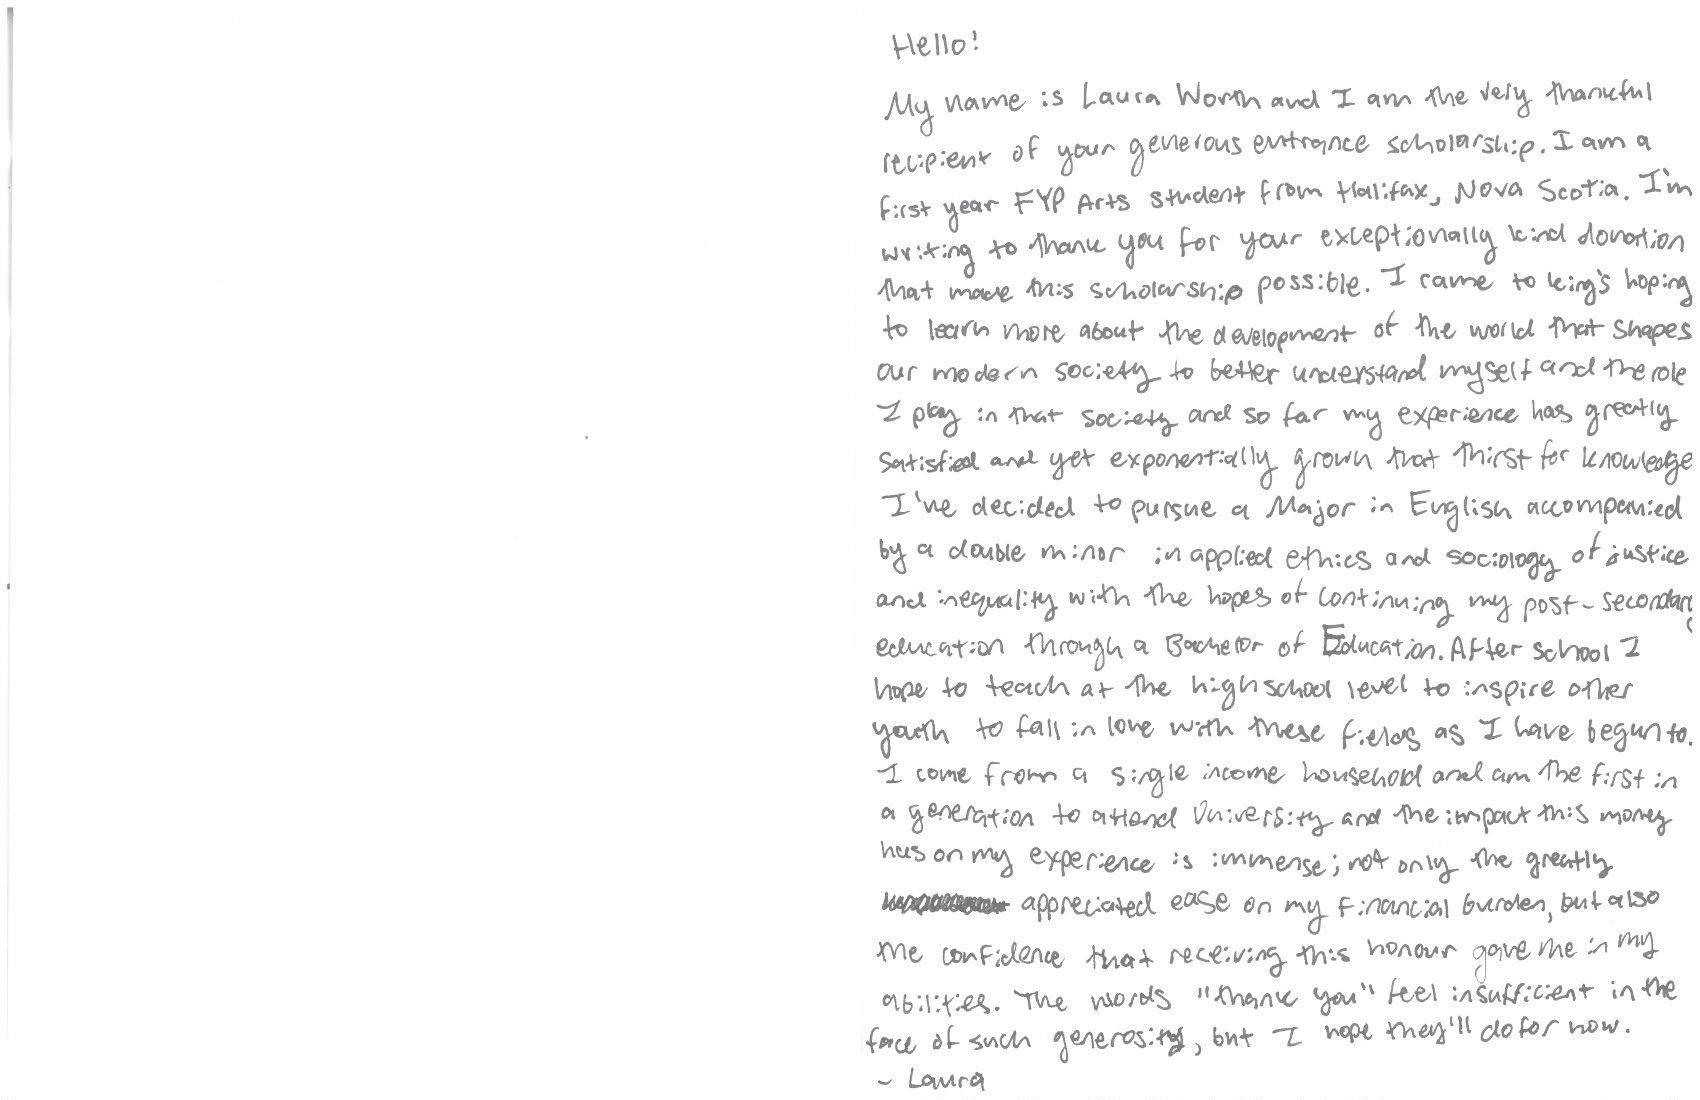 Hello!
My name is Laura Worth and I am the very thankful
recipient of your generous entrance scholarship. I am a
first year FYP Arts student from Halifax, Nova Scotia. I'm
writing to thank you for your exceptionally kind donation
that made this scholarship possible. I came to king's hoping
to learn more about the development of the world that shapes
our modern society to better understand myself and the role
I play in that society and so far my experience has greatly
satisfied and yet exponentially grown that thirst for knowledge
I've decided to pursue a Major in English accompanied
by a double minor in applied ethics and sociology of justice
and inequality with the hopes of continuing my post-secondary
education through a Bachelor of Education. After school I
hope to teach at the high school level to inspire other
youth to fall in love with these fields as I have begun to.
I come from a single income household and am the first in
a generation to attend University and the impact this money
has on my experience is immense; not only the greatly
appreciated ease on my financial burden, but also
the confidence that receiving this honour gave me in my
abilities. The words "thank you" feel insufficient in the
face of such generosity, but I hope they'll do for now.
~ Laura